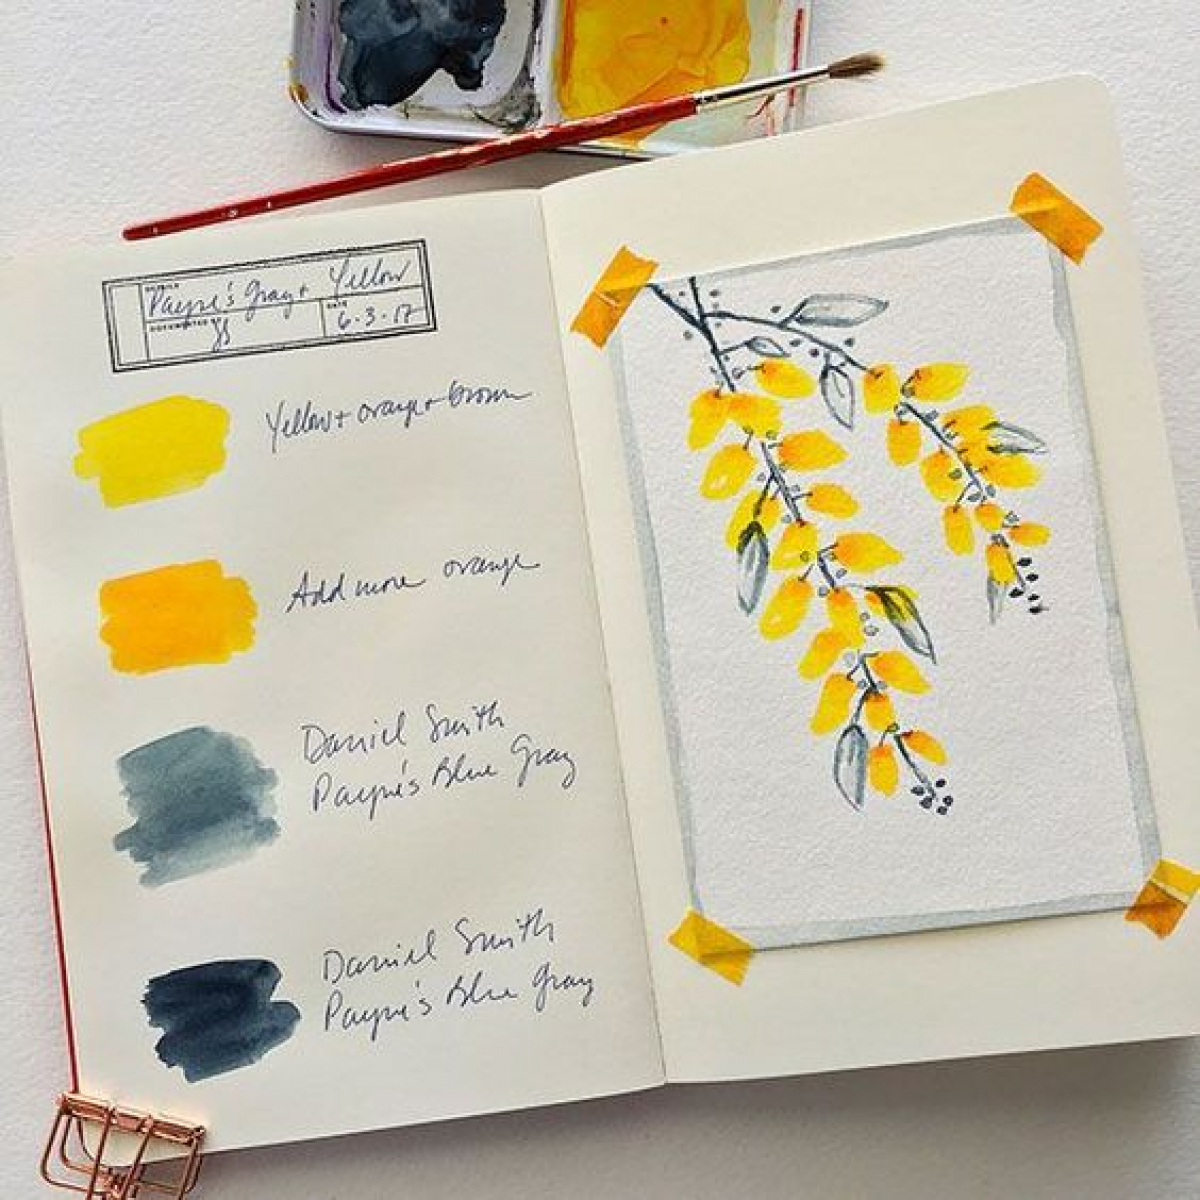 Payne's Gray + Yellow
DATE
DOCUMENTED BY
6-3-17
Yellow + orange + brown
Add more orange
Daniel Smith
Payne's Blue Gray
Daniel Smith
Payne's Blue Gray